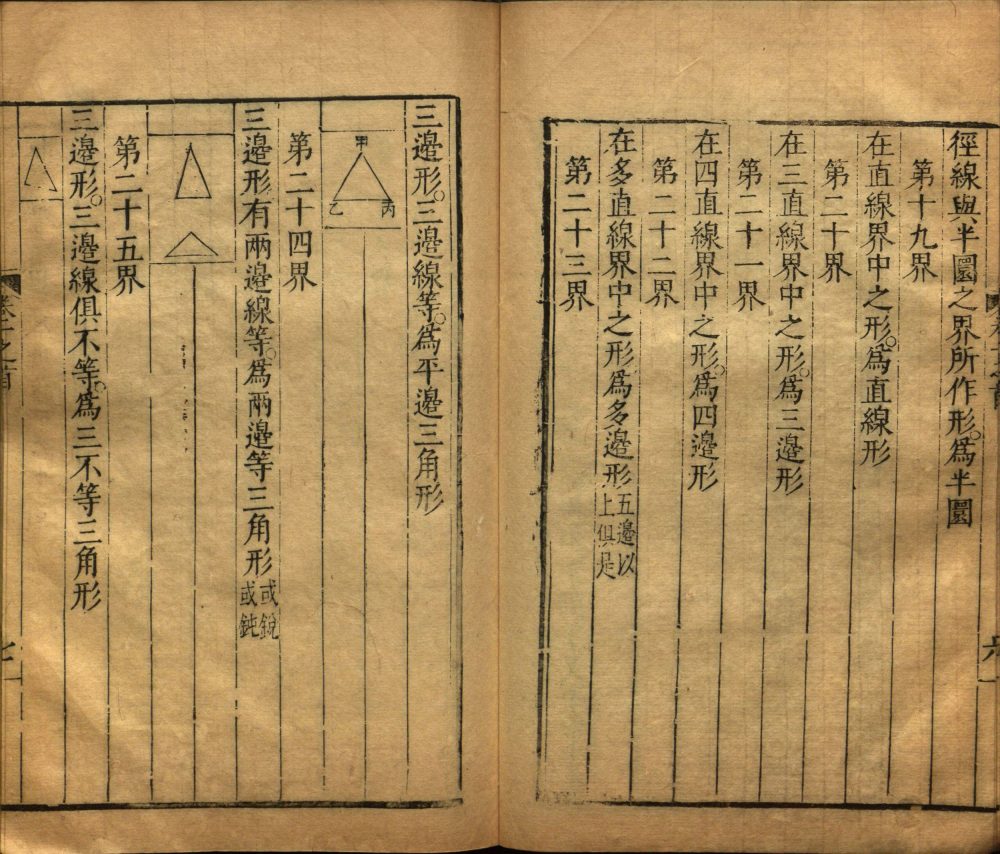 徑線與半圜之界所作形。為半圜
第十九界
在直線界中之形。為直線形
第二十界
在三直線界中之形。為三邊形
第二十一界
在四直線界中之形。為四邊形
第二十二界
在多直線界中之形。為多邊形五邊以
上俱是
第二十三界
三邊形。三邊線等。為平邊三角形
甲
乙
丙
第二十四界
三邊形。有兩邊線等。為兩邊等三角形或銳
或鈍
第二十五界
三邊形。三邊線俱不等。為三不等三角形
卷一之首
六
七